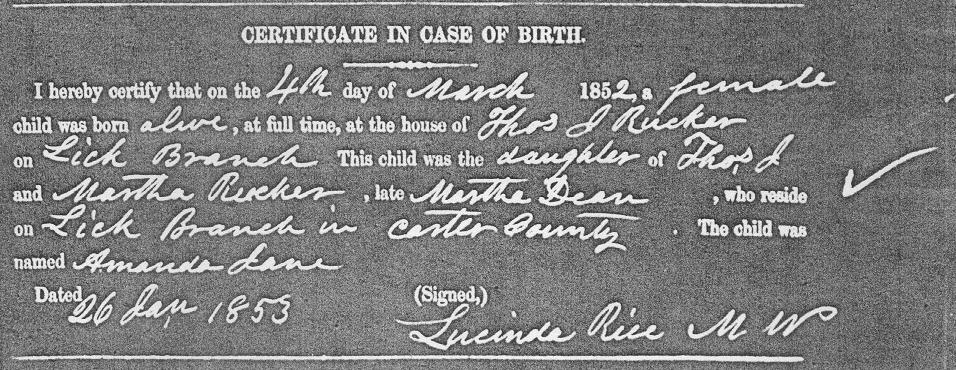 CERTIFICATE IN CASE OF BIRTH.
I hereby certify that on the 4th day of March 1852, a female
child was born alive, at full time, at the house of Thos J Rucker
on Lick Branch This child was the daughter of Thos J
and Martha Rucker, late Martha Dean, who reside
on Lick Branch in Carter County. The child was
named Amanda Jane
Dated 26 Jan 1853 (Signed,)
Lucinda Rice M W